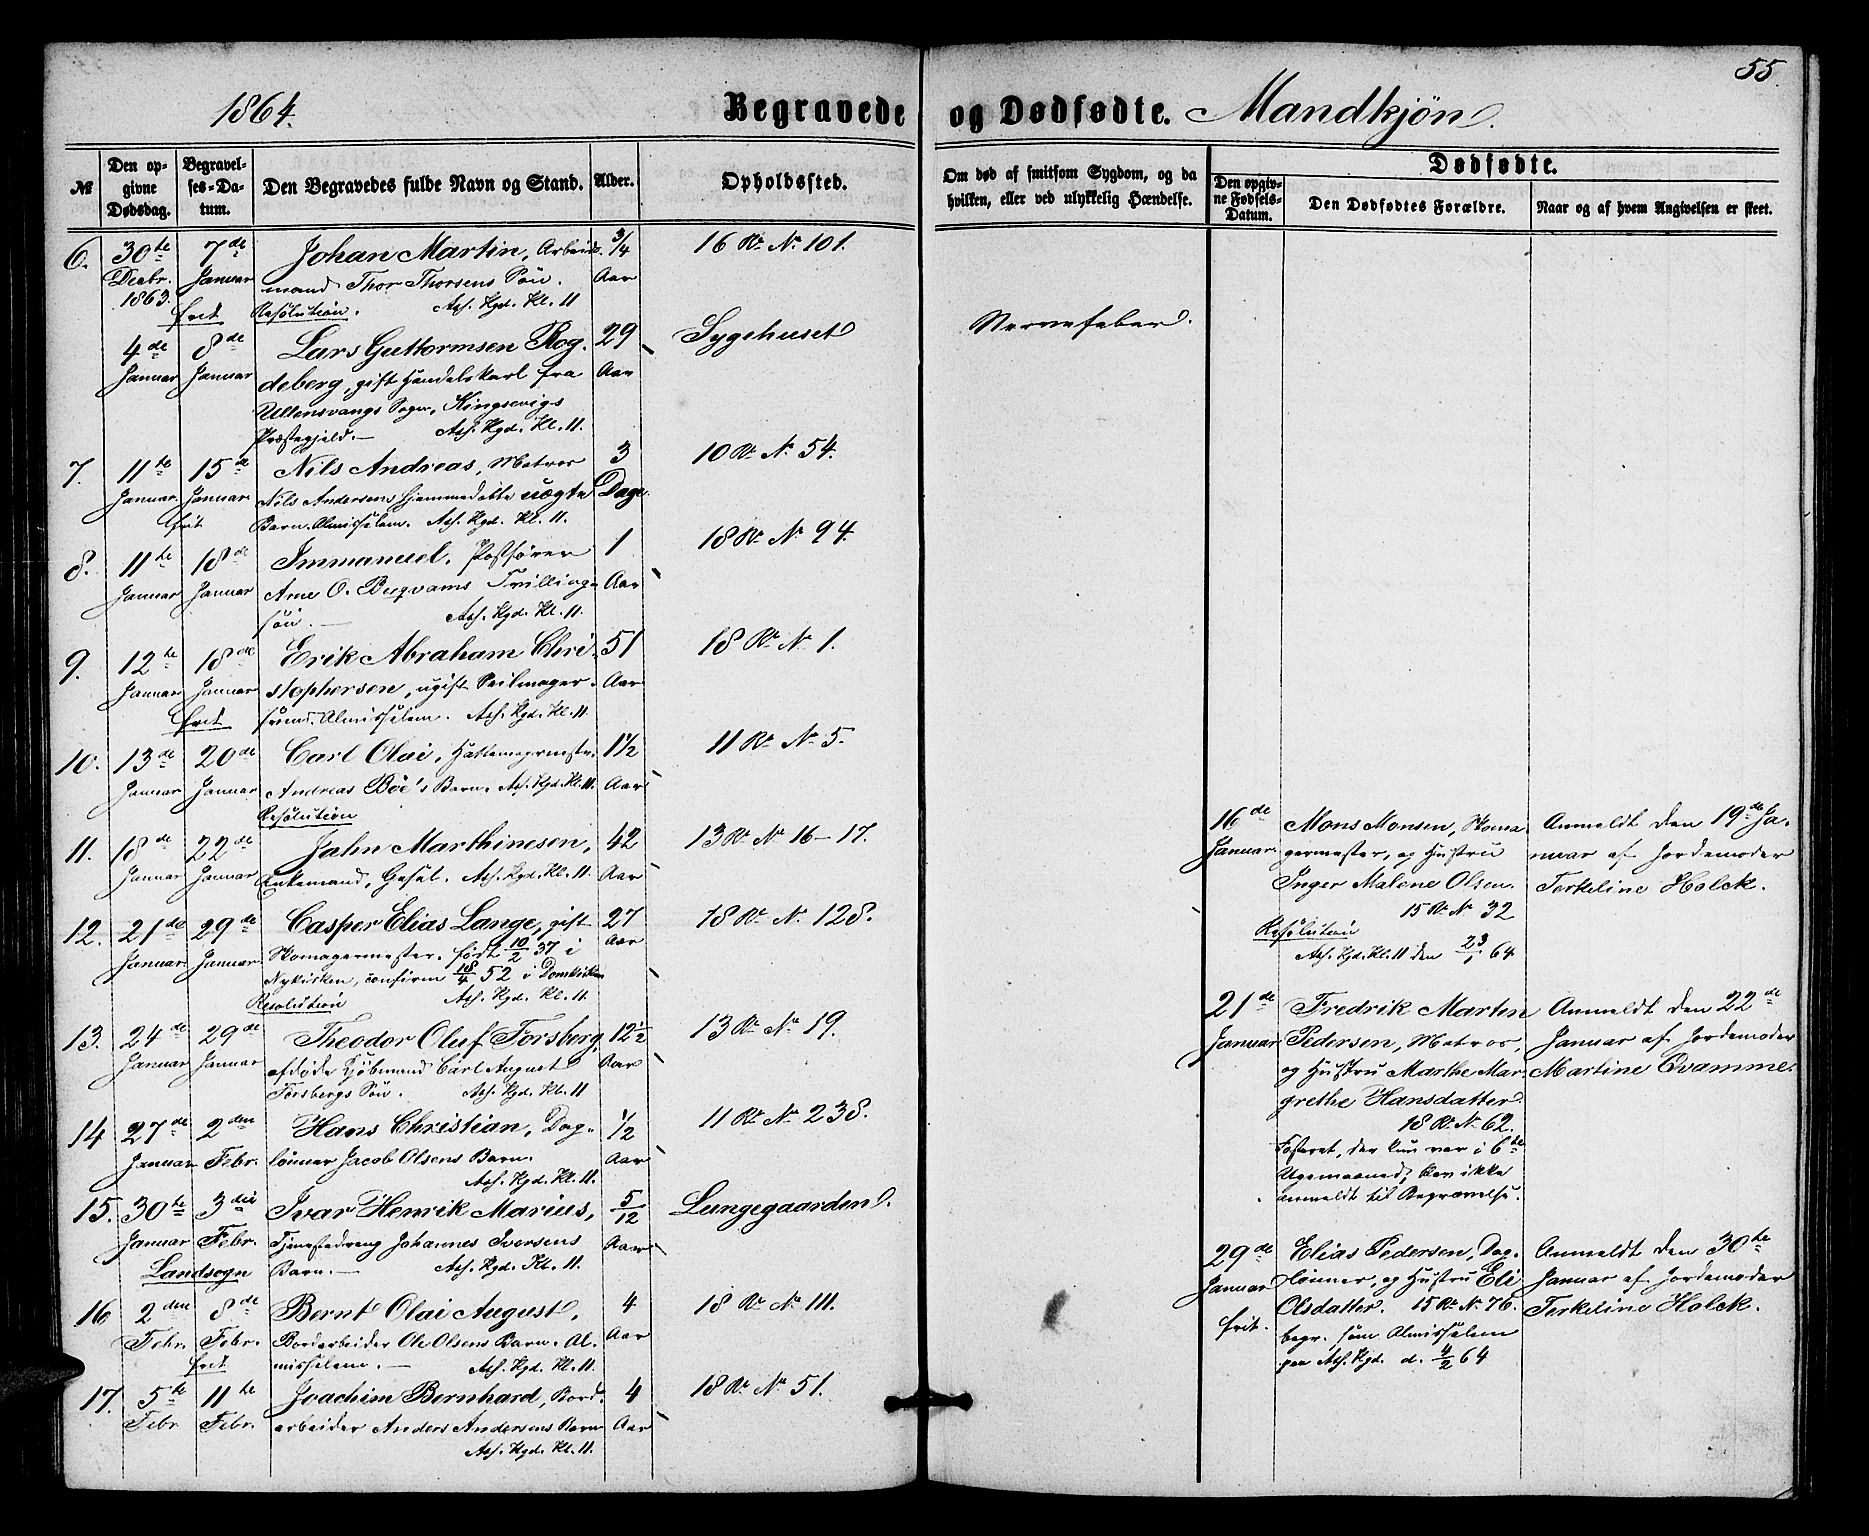 55.
1864.
Begravede og Dødfødte. Mandkjøn.
№
Den opgivne Dødsdag.
Begravelses-Datum.
Den Begravedes fulde Navn og Stand.
Alder.
Opholdssted.
Om død af smitsom Sygdom, og da hvilken, eller ved ulykkelig Hændelse.
Dødfødte.
Den opgivne Fødsels-Datum.
Den Dødfødtes Forældre.
Naar og af hvem Angivelsen er skeet.
6. 30te 7de Johan Martin, Arbeids- 3/4 16 Rd. No. 101.
Decbr. Januar mand Thor Thorsens Søn. Aar
1863. frit Resolution. Ass. Kgd. Kl. 11
4de 8de Lars Guttormsen Rog- 29 Sygehuset Nervefeber.
Januar Januar deberg, gift Handelskarl fra Aar
Ullensvangs Sogn, Kingservigs
Præstegjeld. Ass. Kgd. Kl. 11.
7. 11te 15de Nils Andreas, Matros 3 10 Rd. No. 54.
Januar Januar Nils Andersens hjemmedøbte uægte Dage.
frit Barn. Almisselem. Ass. Kgd. Kl. 11.
8. 11te 18de Immanuel, Postfører 1 18 Rd. No. 94.
Januar Januar Arne O. Bergvams Tvilling- Aar
søn. Ass. Kgd. Kl. 11.
9. 12te 18de Erik Abraham Chri- 51 18 Rd. No. 1.
Januar Januar stophersen, ugift Seilmager- Aar
frit svend. Almisselem. Ass. Kgd. Kl. 11.
10. 13de 20de Carl Olai, Hattemagermestr. 1 1/2 11 Rd. No. 5.
Januar Januar Andreas Böe's Barn. Ass. Kgd. Kl. 11. Aar
Resolution
11. 18de 22de Jahn Marthinesen, 42 13 Rd. No. 16-17.
Januar Januar Enkemand, Gesel. Ass. Kgd. Kl. 11. Aar
12. 21de 29de Casper Elias Lange, gift 27 18 Rd. No. 128.
Januar Januar Skomagermester. født 10/2 37 i Aar
Nykirken, confirm 18/4 52 i Domkirken
Resolution Ass. Kgd. Kl. 11.
13. 24de 29de Theodor Oluf Forsberg, 12 1/2 13 Rd. No. 19.
Januar Januar afdøde Kjøbmand Carl August Aar
Forsbergs Søn. Ass. Kgd. Kl. 11
14 27de 2den Hans Christian, Dag- 1/2 11 Rd. No. 238.
Januar Febr. lønner Jacob Olsens Barn. Aar
Ass. Kgd. Kl. 11.
15. 30te 3die Ivar Henrik Marius, 5/12 Lungegaarden.
Januar Febr. Tjenestedreng Johannes Iversens Aar
Landsogn Barn. Ass. Kgd. Kl. 11.
16 2den 8de Bernt Olai August, 4 18 Rd. No. 111.
Febr. Febr. Bordarbeider Ole Olsens Barn. Al- Aar
frit misselem. Ass. Kgd. Kl. 11.
17. 5te 11te Joachim Bernhard, Bord- 4 18 Rd. No. 51.
Febr. Febr. arbeider Anders Andersens Barn Aar
Ass. Kgd. Kl. 11.
16de Mons Monsen, Skoma- Anmeldt den 19de Ja-
Januar. germester, og Hustru nuar af Jordemoder
Inger Malene Olsen. Terkeline Holck.
15 Rd. No. 32
Resolution
Ass. Kgd. Kl. 11 den 23/1 64
21de Fredrik Martin Anmeldt den 22de
Januar Pedersen, Matros, Januar af Jordemoder
og Hustru Marthe Mar- Martine Qvamme.
grethe Hansdatter.
18 Rd. No. 62.
Fosteret, der kun var i 6te
Ugemaaned, blev ikke
anmeldt til Begravelse.
29de Elias Pedersen, Dag- Anmeldt den 30te
Januar lønner, og Hustru Eli Januar af Jordemoder
Olsdatter. 15 Rd. No. 76. Terkeline Holck.
frit. begr. som Almisselem
paa Ass. Kgd. d. 4/2 64